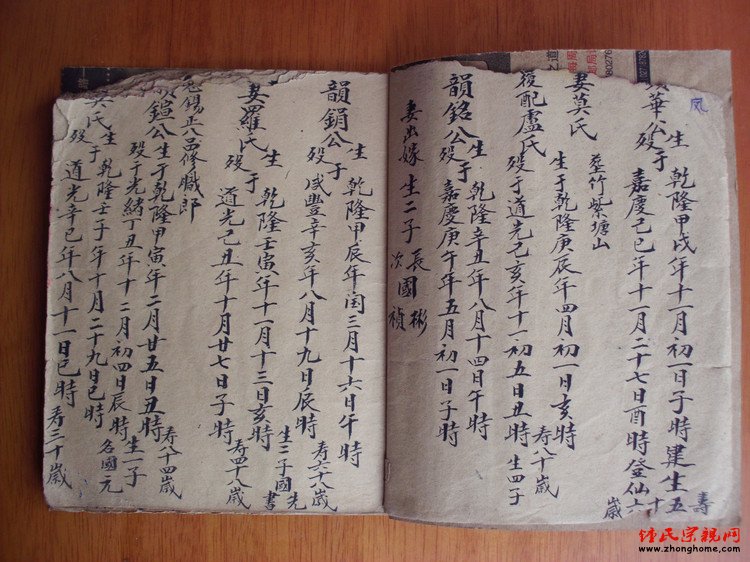 鳳
華公
生于乾隆甲戌年十一月初一日子時建生
殁于嘉慶己巳年十一月二十七日酉時登仙
壽五十六歲
妻莫氏
葬竹紫塘山
生于乾隆庚辰年四月初一日亥時
壽八十歲
殁于道光己亥年十一初五日丑時
生四子
復配盧氏
韻銘公
生于乾隆辛丑年八月十四日午時
殁于嘉慶庚午年五月初一日子時
妻出嫁 生二子 長國彬
次 禎
韻鋗公
生于乾隆甲辰年閏三月十六日午時
殁于咸豐辛亥年八月十九日辰時
壽六十八歲
妻羅氏
生于乾隆壬寅年十一月十三日亥時
生二子國先書
殁于道光己丑年十月廿七日子時
壽四十八歲
恩錫正八品修職郎
鍹公生于乾隆甲寅年二月廿五日丑時
壽八十四歲
殁于光緒丁丑年十二月初四日辰時
生一子
名國元
氏
生于乾隆壬子年十月二十九日巳時
殁道光辛巳年八月十一日巳時
寿三十歲
道
80276
钟氏宗亲网
www.zhonghome.com